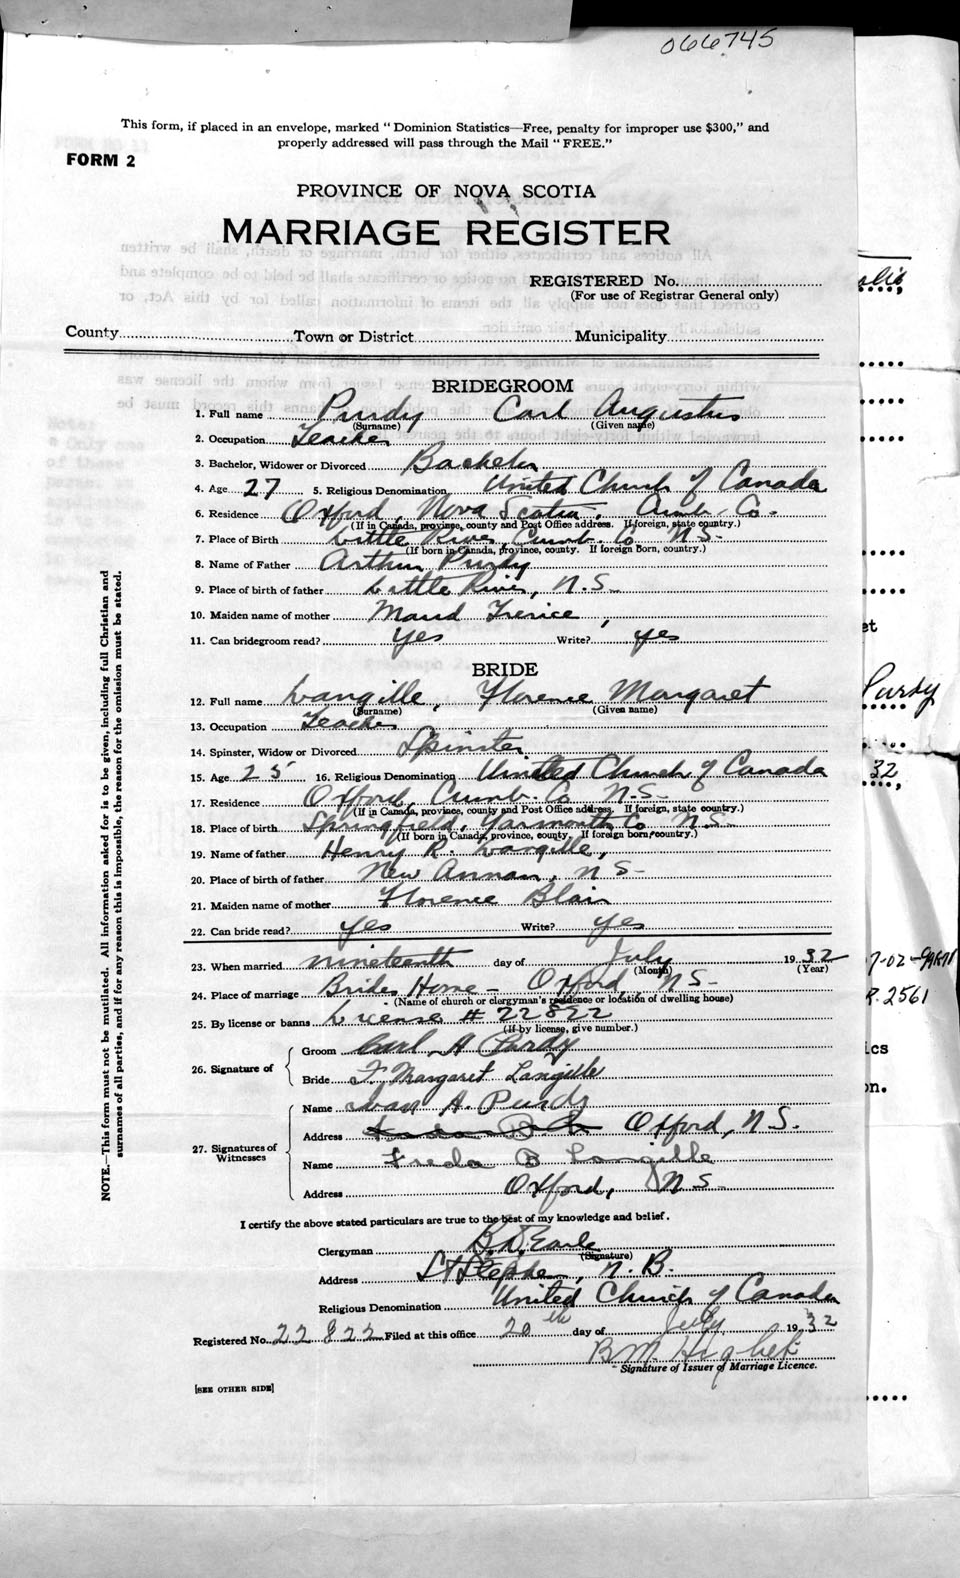 066745
This form, if placed in an envelope, marked "Dominion Statistics—Free, penalty for improper use $300," and
properly addressed will pass through the Mail "FREE."
FORM 2
PROVINCE OF NOVA SCOTIA
MARRIAGE REGISTER
REGISTERED No.
(For use of Registrar General only)
County Town or District Municipality
BRIDEGROOM
1. Full name Purdy Carl Augustus
(Surname) (Given name)
2. Occupation Teacher
3. Bachelor, Widower or Divorced Bachelor
4. Age 27 5. Religious Denomination United Church of Canada
6. Residence Oxford, Nova Scotia. Cumb. Co.
(If in Canada, province, county and Post Office address. If foreign, state country.)
7. Place of Birth Little River, Cumb. Co N.S.
(If born in Canada, province, county. If foreign born, country.)
8. Name of Father Arthur Purdy
9. Place of birth of father Little River, N.S.
10. Maiden name of mother Maud
11. Can bridegroom read? yes Write? yes
BRIDE
12. Full name Langille, Florence Margaret
(Surname) (Given name)
13. Occupation Teacher
14. Spinster, Widow or Divorced Spinster
15. Age 25 16. Religious Denomination United Church of Canada
17. Residence Oxford, Cumb. Co N.S.
(If in Canada, province, county and Post Office address. If foreign, state country.)
18. Place of birth Springfield, Yarmouth Co. N.S.
(If born in Canada, province, county. If foreign born, country.)
19. Name of father Henry R. Langille,
20. Place of birth of father New Annan, N S.
21. Maiden name of mother Florence Blair
22. Can bride read? yes Write? yes
23. When married nineteenth day of July 1932
(Month) (Year)
24. Place of marriage Brides Home - Oxford, N S.
(Name of church or clergyman's residence or location of dwelling house)
25. By license or banns License # 22822
(If by license, give number.)
26. Signature of
Groom Carl A Purdy
Bride F. Margaret Langille
27. Signatures of Witnesses
Name A. Purdy
Address Oxford, N.S.
Name Freda B Langille
Address Oxford, N S.
I certify the above stated particulars are true to the best of my knowledge and belief.
Clergyman B. D. Earle
(Signature)
Address St Stephen, N. B.
Religious Denomination United Church of Canada
Registered No. 22 822 Filed at this office 20th day of July 1932
B M.
Signature of Issuer of Marriage Licence.
[SEE OTHER SIDE]
NOTE.—This form must not be mutilated. All information asked for is to be given, including full Christian and
surnames of all parties, and if for any reason this is impossible, the reason for the omission must be stated.
et
Purdy
32,
R. 2561
ics
on.